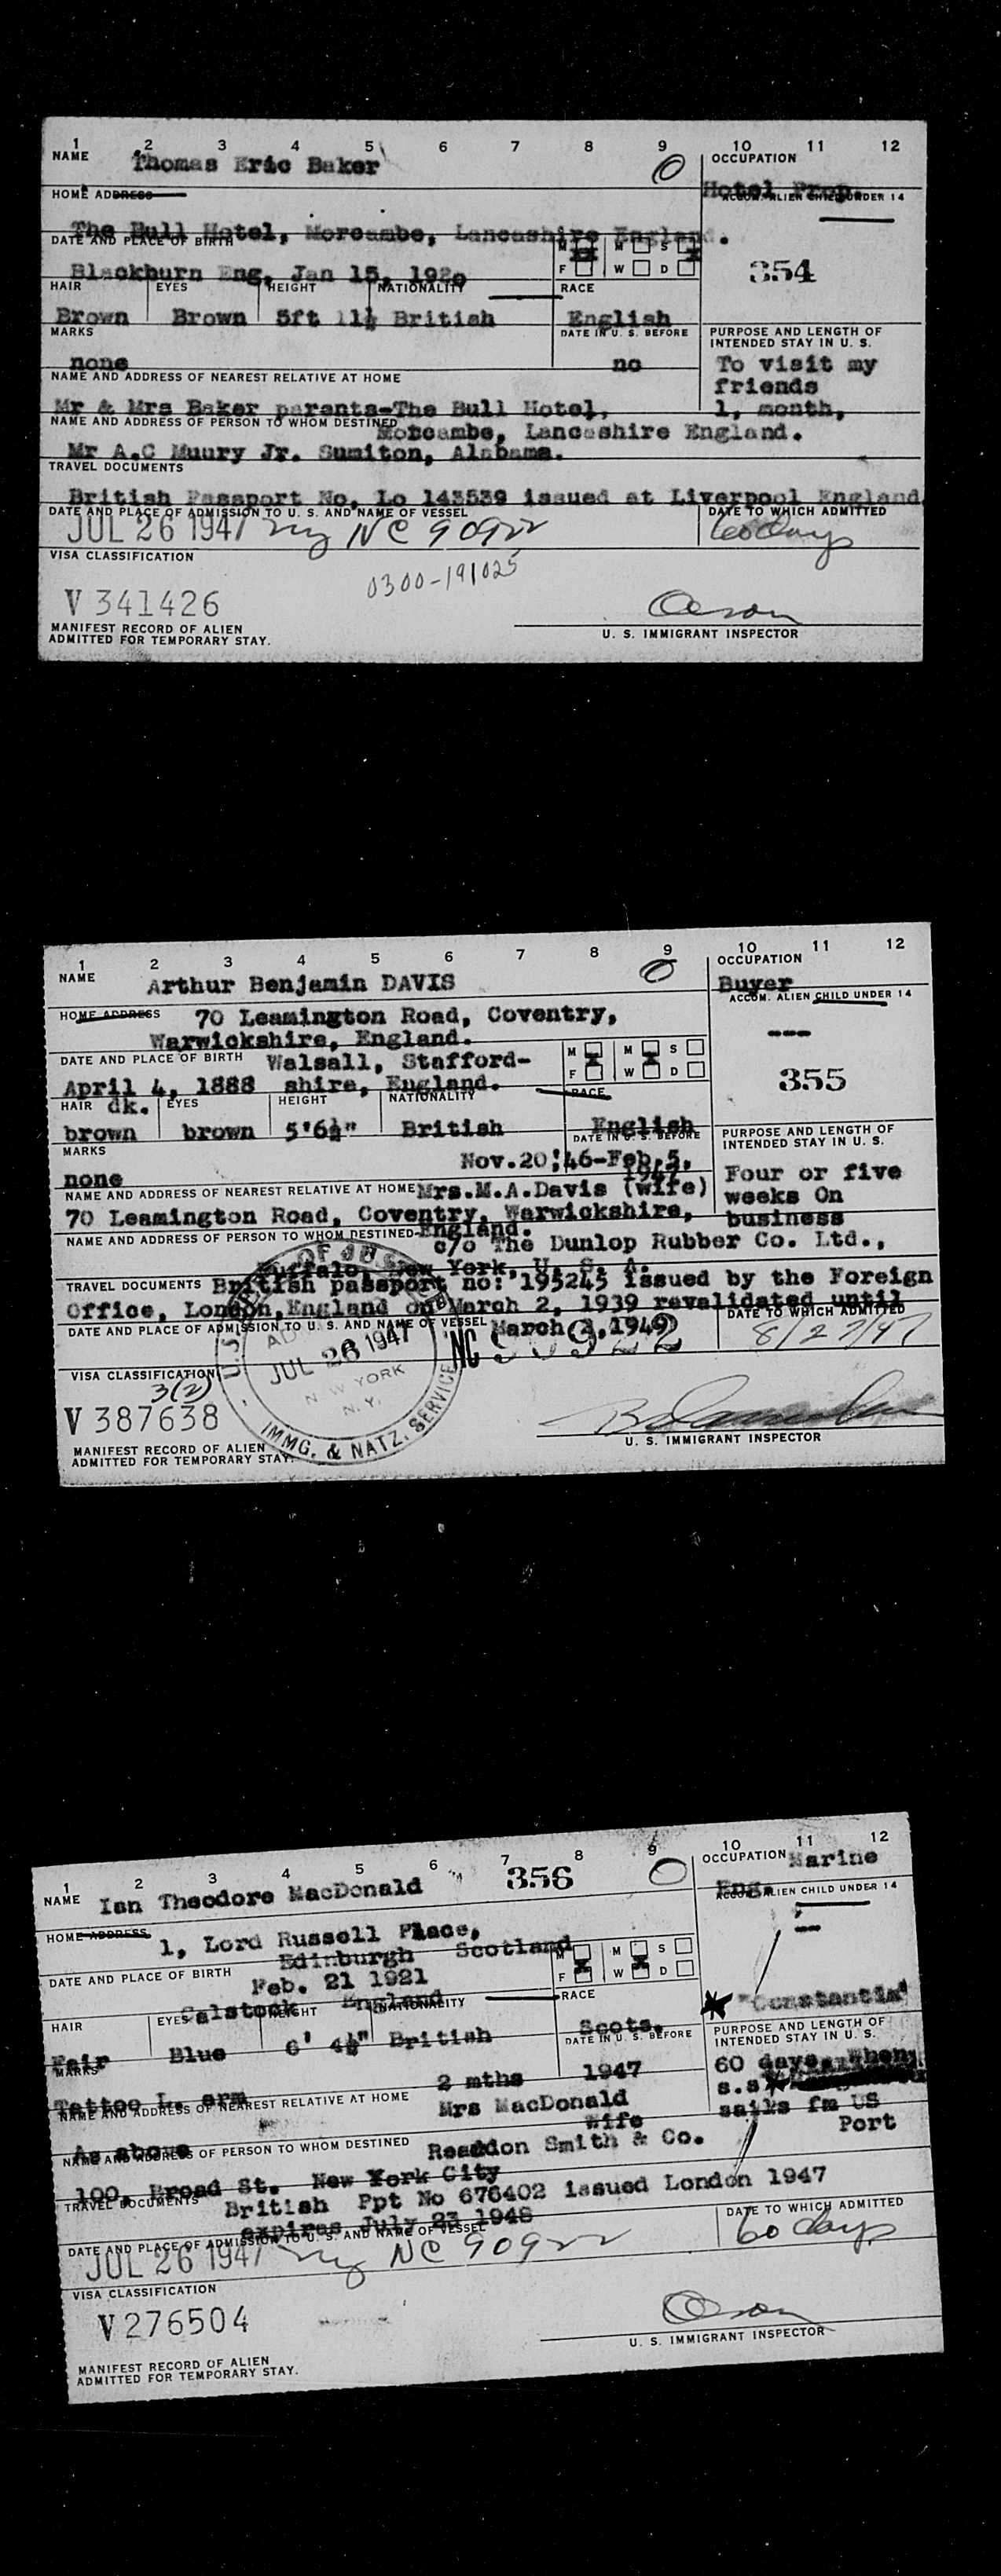 1 2 3 4 5 6 7 8 9 10 11 12
NAME Thomas Eric Baker O OCCUPATION
Hotel Prop.
HOME ADDRESS ACCOM. ALIEN CHILD UNDER 14
The Bull Hotel, Morcambe, Lancashire England.
DATE AND PLACE OF BIRTH M M S
F W D 354
Blackburn Eng, Jan 15, 192o
HAIR EYES HEIGHT NATIONALITY RACE
Brown Brown 5ft 11½ British English
MARKS DATE IN U. S. BEFORE PURPOSE AND LENGTH OF
INTENDED STAY IN U. S.
none no To visit my
friends
NAME AND ADDRESS OF NEAREST RELATIVE AT HOME
Mr & Mrs Baker parents-The Bull Hotel, 1, month,
NAME AND ADDRESS OF PERSON TO WHOM DESTINED Morcambe, Lancashire England.
Mr A.C Muury Jr. Sumiton, Alabama.
TRAVEL DOCUMENTS
British Passport No, Lo 143539 issued at Liverpool England
DATE AND PLACE OF ADMISSION TO U. S. AND NAME OF VESSEL DATE TO WHICH ADMITTED
JUL 26 1947 ny NC 90922 60 days
VISA CLASSIFICATION
0300-191025
V 341426
MANIFEST RECORD OF ALIEN
ADMITTED FOR TEMPORARY STAY. U. S. IMMIGRANT INSPECTOR
1 2 3 4 5 6 7 8 9 10 11 12
NAME Arthur Benjamin DAVIS O OCCUPATION
Buyer
ACCOM. ALIEN CHILD UNDER 14
HOME ADDRESS 70 Leamington Road, Coventry,
Warwickshire, England. ---
DATE AND PLACE OF BIRTH Walsall, Stafford- M M S
F W D 355
April 4, 1888 shire, England.
HAIR dk. EYES HEIGHT NATIONALITY RACE
brown brown 5'6½" British English
MARKS DATE IN U. S. BEFORE PURPOSE AND LENGTH OF
INTENDED STAY IN U. S.
none Nov.20,'46-Feb.5, 1947 Four or five
NAME AND ADDRESS OF NEAREST RELATIVE AT HOME Mrs.M.A.Davis (wife) weeks On
70 Leamington Road, Coventry, Warwickshire, business
NAME AND ADDRESS OF PERSON TO WHOM DESTINED England.
c/o The Dunlop Rubber Co. Ltd.,
Buffalo, New York, U. S. A.
TRAVEL DOCUMENTS British passport no: 195245 issued by the Foreign
Office, London,England on March 2, 1939 revalidated until
DATE AND PLACE OF ADMISSION TO U. S. AND NAME OF VESSEL March 2,1949) DATE TO WHICH ADMITTED
JUL 26 1947 NC 90922 8/27/47
NEW YORK
N. Y.
IMMG. & NATZ. SERVICE
VISA CLASSIFICATION
3(2)
V 387638
MANIFEST RECORD OF ALIEN
ADMITTED FOR TEMPORARY STAY. U. S. IMMIGRANT INSPECTOR
1 2 3 4 5 6 7 8 9 10 11 12
356
NAME Ian Theodore MacDonald O OCCUPATION Marine
Eng.
ACCOM. ALIEN CHILD UNDER 14
HOME ADDRESS 1, Lord Russell Place,
Edinburgh Scotland
DATE AND PLACE OF BIRTH M M S
Feb. 21 1921 F W D
Calstock England
HAIR EYES HEIGHT NATIONALITY RACE "Constantia"
Fair Blue 6' 4½" British Scots.
MARKS DATE IN U. S. BEFORE PURPOSE AND LENGTH OF
INTENDED STAY IN U. S.
Tattoo L. arm 2 mths 1947 60 days, When
s.s
NAME AND ADDRESS OF NEAREST RELATIVE AT HOME Mrs MacDonald sails fm US
As above wife Port
NAME AND ADDRESS OF PERSON TO WHOM DESTINED Readdon Smith & Co.
100, Broad St. New York City
TRAVEL DOCUMENTS British Ppt No 676402 issued London 1947
expires July 23 1948
DATE AND PLACE OF ADMISSION TO U. S. AND NAME OF VESSEL DATE TO WHICH ADMITTED
JUL 26 1947 ny NC 90922 60 days
VISA CLASSIFICATION
V 276504
MANIFEST RECORD OF ALIEN
ADMITTED FOR TEMPORARY STAY. U. S. IMMIGRANT INSPECTOR